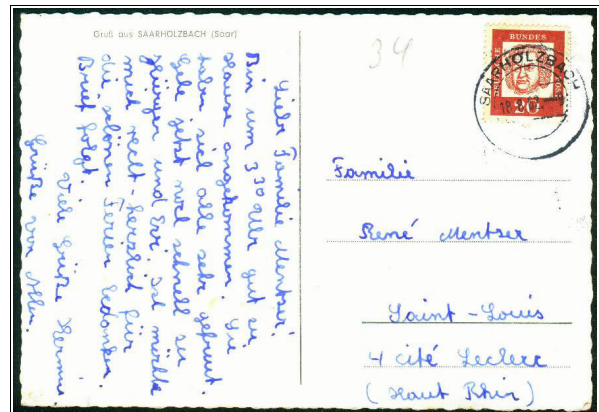 Gruß aus SAARHOLZBACH (Saar)
34
BUNDES
20
SAARHOLZBACH
18.
Liebe Familie Mentzer!
Bin um 3 30 Uhr gut zu
Hause angekommen. Sie
haben sich alle sehr gefreut.
Gehe jetzt noch schnell zu
Jürgen und Evi. Ich möchte
mich recht herzlich für
die schönen Ferien bedanken.
Brief folgt.
Viele Grüße Hermi
Grüße von Allen.
Familie
René Mentzer
Saint-Louis
4 cité Leclerc
(Haut Rhin)